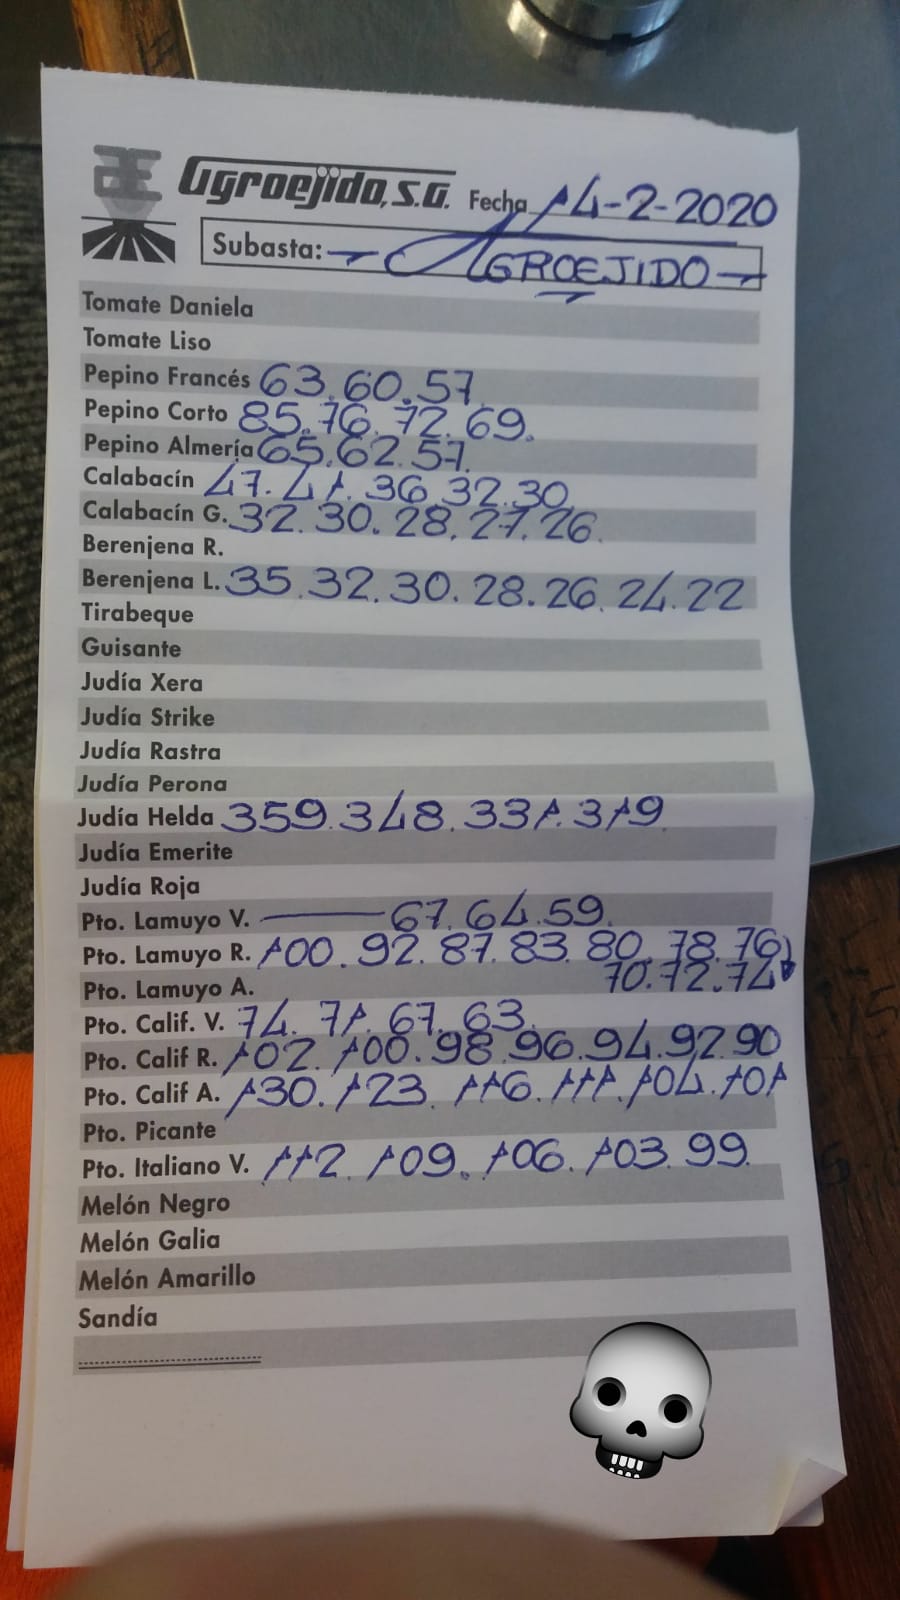 Agroejido, S.A. Fecha 14-2-2020
Subasta: - AGROEJIDO -
Tomate Daniela
Tomate Liso
Pepino Francés 63.60.57
Pepino Corto 85.76.72.69.
Pepino Almería 65.62.57.
Calabacín 47.41.36.32.30
Calabacín G. 32.30.28.27.26.
Berenjena R.
Berenjena L. 35.32.30.28.26.24.22
Tirabeque
Guisante
Judía Xera
Judía Strike
Judía Rastra
Judía Perona
Judía Helda 359.348.331.319
Judía Emerite
Judía Roja
Pto. Lamuyo V. — 67.64.59.
Pto. Lamuyo R. 100.92.87.83.80.78.76
Pto. Lamuyo A. 70.72.74
Pto. Calif. V. 74.71.67.63.
Pto. Calif R. 102.100.98.96.94.92.90
Pto. Calif A. 130.123.116.111.104.101
Pto. Picante
Pto. Italiano V. 112.109.106.103.99.
Melón Negro
Melón Galia
Melón Amarillo
Sandía